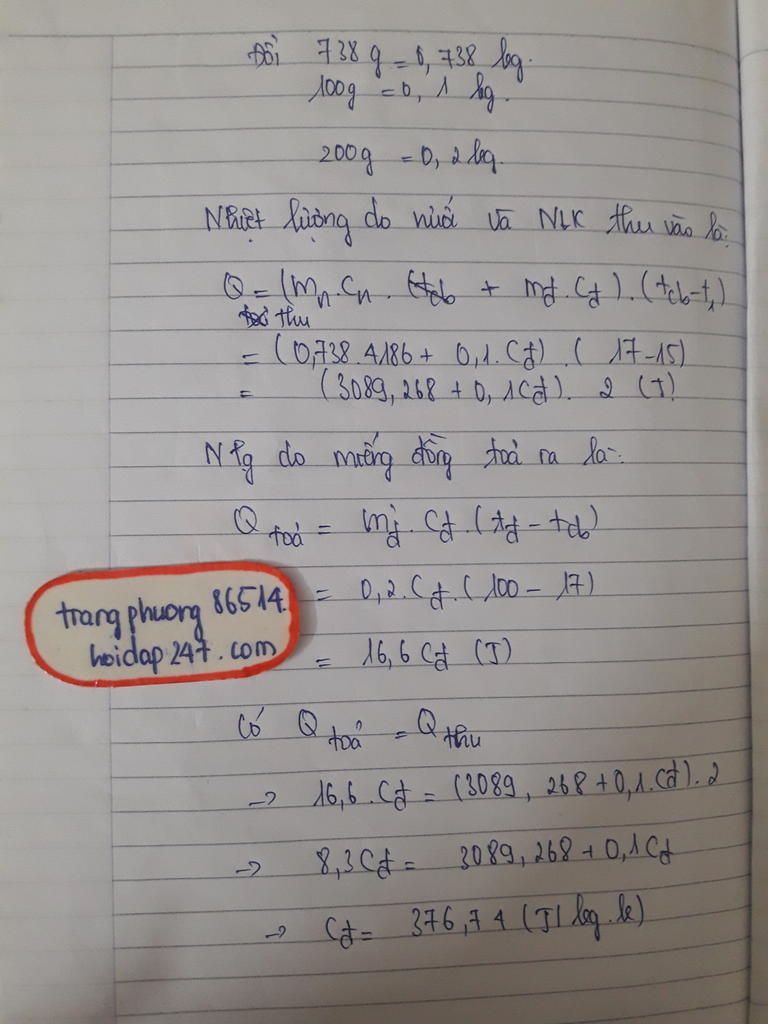 Đổi 738g = 0,738 kg.
100g = 0,1 kg.
200g = 0,2 kg.
Nhiệt lượng do nước và NLK thu vào là:
Q thu = (mn.cn + mđ.cđ).(tcb-t1)
= (0,738.4186 + 0,1.cđ).(17-15)
= (3089,268 + 0,1cđ).2 (J)
Ntg do miếng đồng toả ra là:
Q toả = mđ'.cđ.(tđ - tcb)
= 0,2.cđ.(100-17)
= 16,6 cđ (J)
trangphuong 86514.
hoidap247.com
Có Q toả = Q thu
→ 16,6.cđ = (3089,268 + 0,1.cđ).2
→ 8,3cđ = 3089,268 + 0,1cđ
→ cđ = 376,74 (J/kg.k)